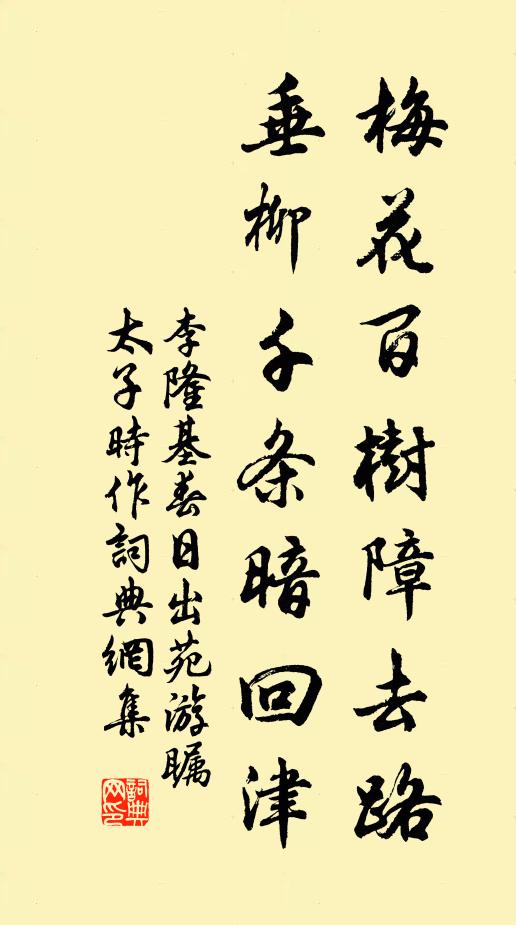 梅花百樹障去路
垂柳千条暗回津
李隆基春日出苑游瞩
太子時作詞典網集
詞典网印